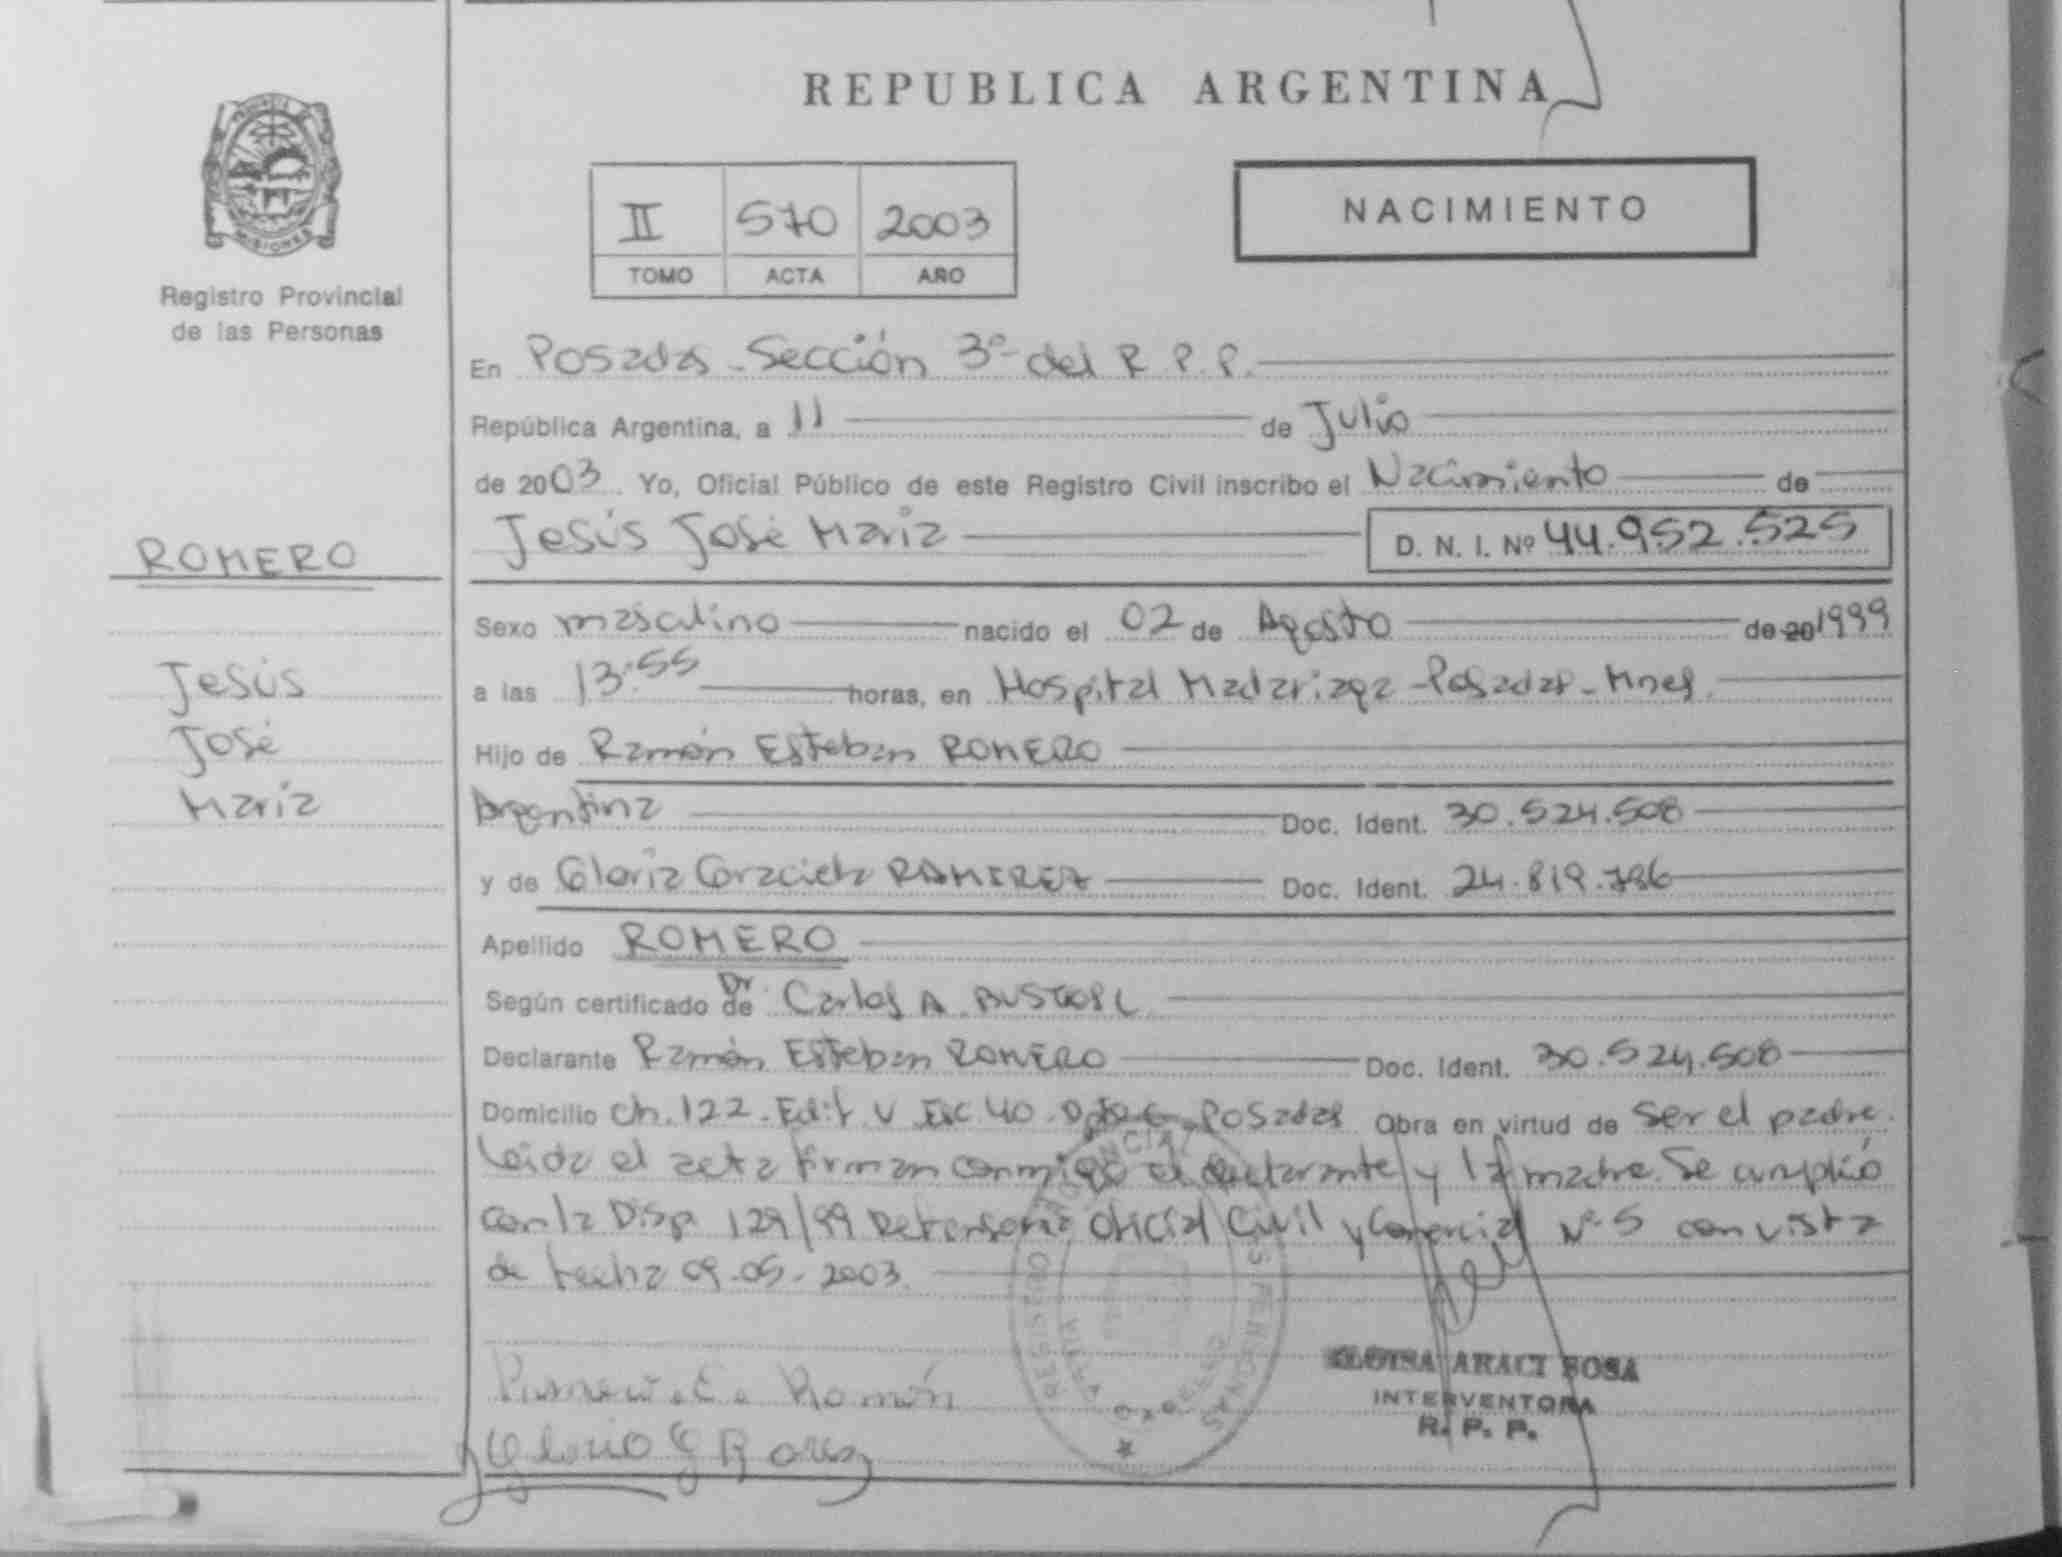 REPUBLICA ARGENTINA
MISIONES
Registro Provincial
de las Personas
II 570 2003
TOMO ACTA AÑO
NACIMIENTO
En Posadas - Sección 3º del R.P.P.
República Argentina, a 11 de Julio
de 2003. Yo, Oficial Público de este Registro Civil inscribo el Nacimiento de
Jesús José María D. N. I. Nº 44.952.525
ROMERO
Jesús
José
María
Sexo masculino nacido el 02 de Agosto de 20 1999
a las 13:55 horas, en Hospital Madariaga - Posadas - Mnes.
Hijo de Ramón Esteban ROMERO
Argentina Doc. Ident. 30.524.508
y de Gloria Graciela RAMIREZ Doc. Ident. 24.819.786
Apellido ROMERO
Según certificado de Dr. Carlos A.
Declarante Ramón Esteban ROMERO Doc. Ident. 30.524.508
Domicilio Ch. 122 - Edif V Esc 40 Posadas Obra en virtud de ser el padre.
Leída el acta firman conmigo el declarante y la madre. Se amplió
con la Disp. 129/99 Defensoria Oficial Civil y Comercial Nº 5 con vista
de fecha 09-05-2003.
ELOISA ARACI SOSA
INTERVENTORA
R. P. P.